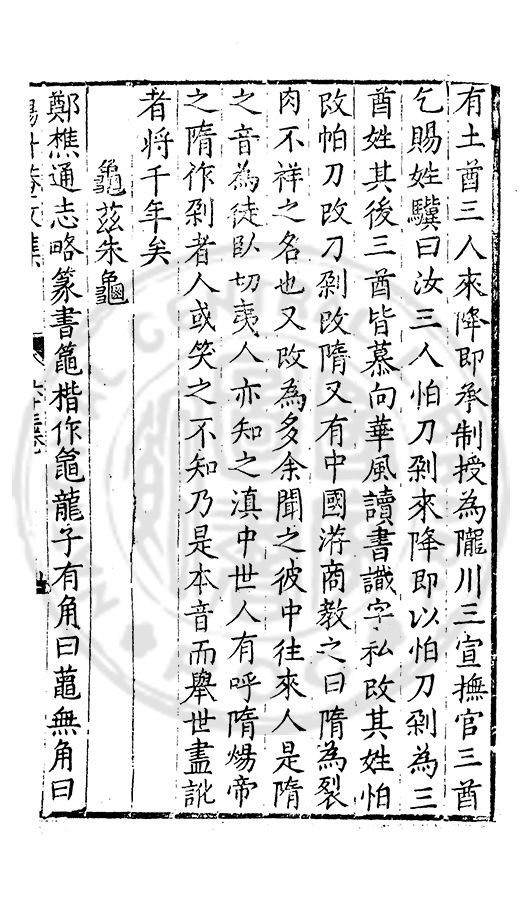 有土酋三人來降即承制授為隴川三宣撫官三酋
乞賜姓驥曰汝三人怕刀剁來降即以怕刀剁為三
酋姓其後三酋皆慕向華風讀書識字私改其姓怕
改帕刀改刁剁改隋又有中國游商教之曰隋為裂
肉不祥之名也又改為多余聞之彼中往來人是隋
之音為徒臥切夷人亦知之滇中世人有呼隋煬帝
之隋作剁者人或笑之不知乃是本音而舉世盡訛
者將千年矣
龜茲朱龜
鄭樵通志略篆書龍楷作龍龍子有角曰無角曰